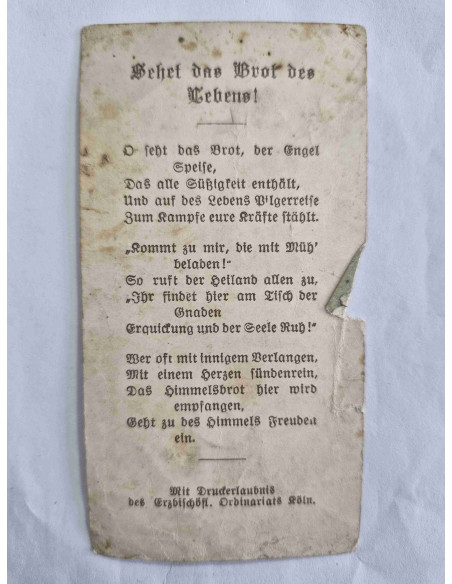 Sehet das Brot des
Lebens!
O seht das Brot, der Engel
Speise,
Das alle Süßigkeit enthält,
Und auf des Lebens Pilgerreise
Zum Kampfe eure Kräfte stählt.
„Kommt zu mir, die mit Müh'
beladen!“
So ruft der Heiland allen zu,
„Ihr findet hier am Tisch der
Gnaden
Erquickung und der Seele Ruh!“
Wer oft mit innigem Verlangen,
Mit einem Herzen sündenrein,
Das Himmelsbrot hier wird
empfangen,
Geht zu des Himmels Freuden
ein.
Mit Druckerlaubnis
des Erzbischöfl. Ordinariats Köln.